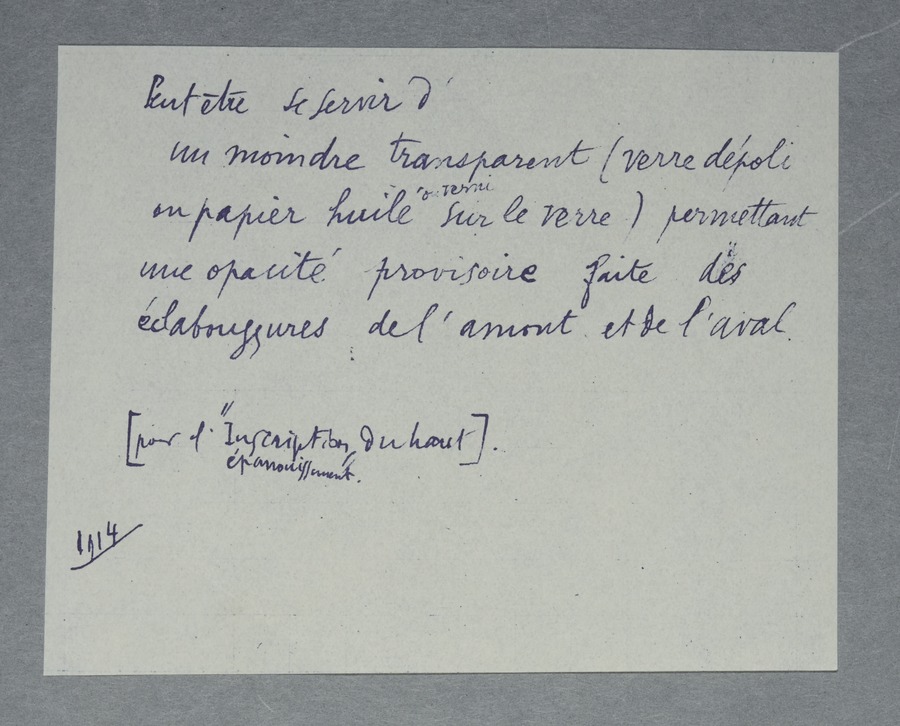 Peut être se servir d'
un moindre transparent (verre dépoli
ou papier huilé ou verni sur le verre) permettant
une opacité provisoire faite des
éclaboussures de l'amont et de l'aval.
[pour l'"Inscription du haut].
épanouissement".
1914